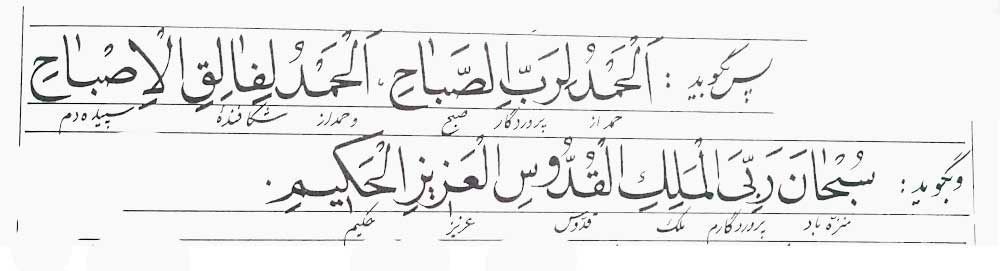 پس گوید : اَلْحَمْدُ لِرَبِّ الصَّبٰاحِ ، اَلْحَمْدُ لِفٰالِقِ الْاِصْبٰاحِ
حمد از پروردگار صبح وحمداز شکافندهٔ سپیده دم
وبگوید : سُبْحٰانَ رَبِّیَ الْمَلِکِ الْقُدُّوسِ الْعَزیزِ الْحَکیمِ .
منزّه باد پروردگارم ملک قدّوس عزیز حکیم